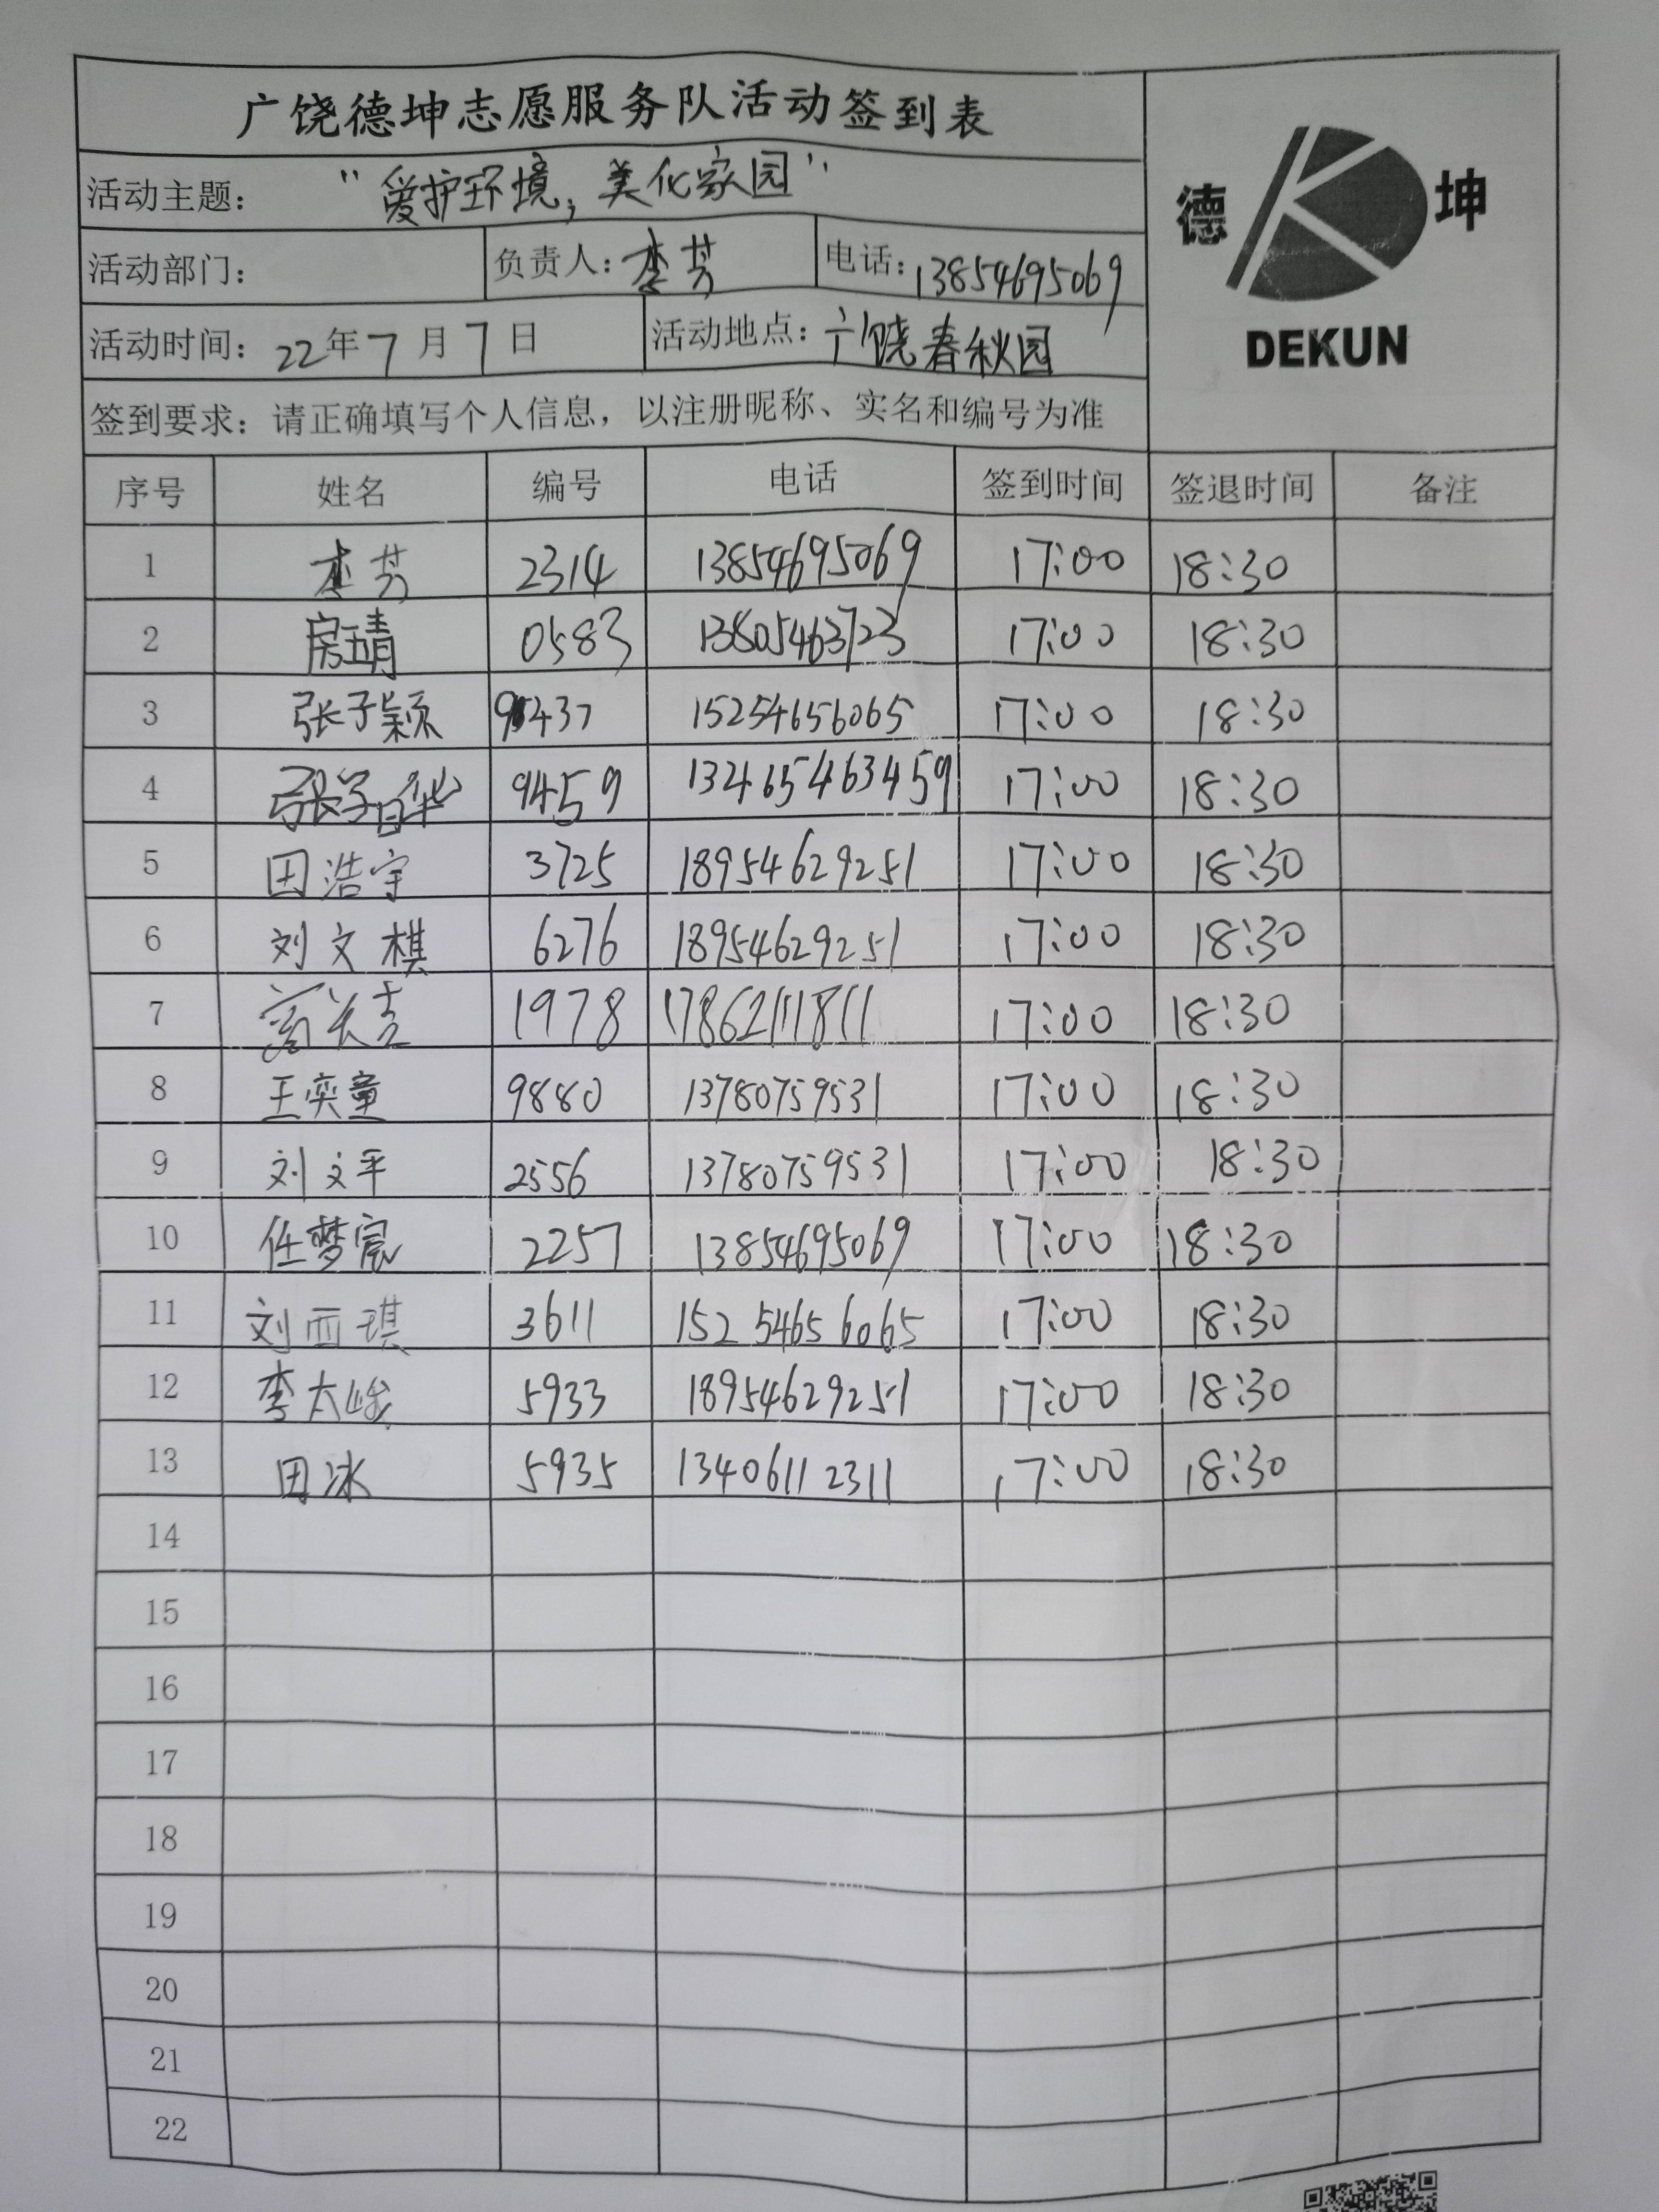 广饶德坤志愿服务队活动签到表
活动主题： “爱护环境，美化家园”
德 坤
DEKUN
活动部门： 负责人：李芳 电话：13854695069
活动时间：22年7月7日 活动地点：广饶春秋园
签到要求：请正确填写个人信息，以注册昵称、实名和编号为准
序号 姓名 编号 电话 签到时间 签退时间 备注
1 李芳 2314 13854695069 17:00 18:30
2 房靖 0583 13805463723 17:00 18:30
3 张子颖 9437 15254656065 17:00 18:30
4 9459 132465463459 17:00 18:30
5 田浩宇 3725 18954629251 17:00 18:30
6 刘文棋 6276 18954629251 17:00 18:30
7 1978 17862111811 17:00 18:30
8 王奕童 9880 13780759531 17:00 18:30
9 刘文平 2556 13780759531 17:00 18:30
10 任梦宸 2257 13854695069 17:00 18:30
11 刘西琪 3611 15254656065 17:00 18:30
12 李太峻 5933 18954629251 17:00 18:30
13 田冰 5935 13406112311 17:00 18:30
14
15
16
17
18
19
20
21
22